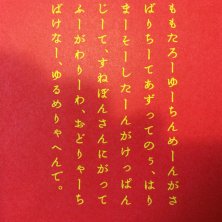 ももたろーゆーちんめーんがさ
ばりちーてあずってのぅ、はり
まーそーしたーんがけっぱん
じーて、すねぽんさんにがって
ふーがわりーわ、おどりゃーち
ばけなー、ゆるめりゃへんで。